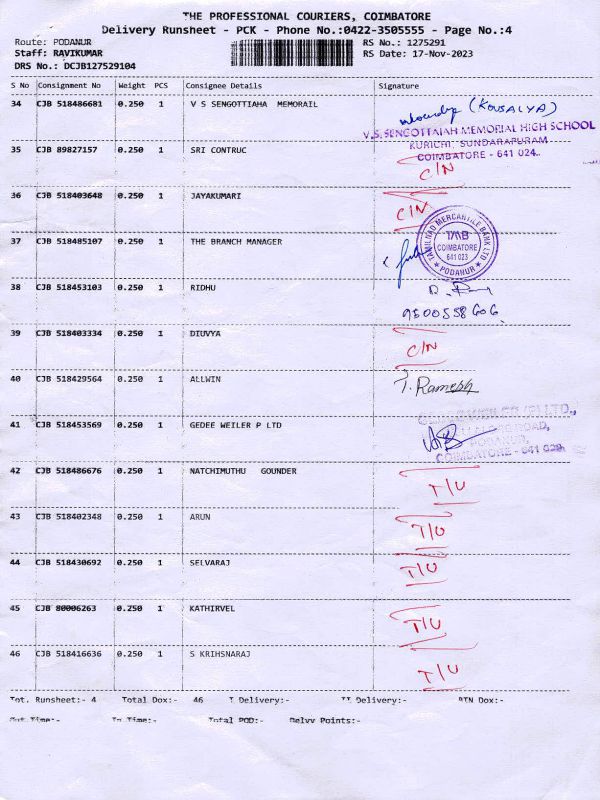 THE PROFESSIONAL COURIERS, COIMBATORE
Delivery Runsheet - PCK - Phone No.:0422-3505555 - Page No.:4
Route: PODANUR
RS No.: 1275291
Staff: RAVIKUMAR
RS Date: 17-Nov-2023
DRS No.: DCJB127529104
S No Consignment No Weight PCS Consignee Details Signature
34 CJB 518486681 0.250 1 V S SENGOTTIAHA MEMORAIL
(KOUSALYA)
V.S. SENGOTTAIAH MEMORIAL HIGH SCHOOL
KURICHI, SUNDARAPURAM
COIMBATORE - 641 024.
35 CJB 89827157 0.250 1 SRI CONTRUC
C/N
36 CJB 518403648 0.250 1 JAYAKUMARI
C/N
37 CJB 518485107 0.250 1 THE BRANCH MANAGER
TAMILNAD MERCANTILE BANK LTD
TMB
COIMBATORE
641 023
* PODANUR *
38 CJB 518453103 0.250 1 RIDHU
9500558606
39 CJB 518403334 0.250 1 DIUVYA
C/N
40 CJB 518429564 0.250 1 ALLWIN
T. Ramesh
41 CJB 518453569 0.250 1 GEDEE WEILER P LTD
ROAD,
PODANUR,
COIMBATORE - 641 023.
42 CJB 518486676 0.250 1 NATCHIMUTHU GOUNDER
T/U
43 CJB 518402348 0.250 1 ARUN
T/U
44 CJB 518430692 0.250 1 SELVARAJ
T/U
45 CJB 80006263 0.250 1 KATHIRVEL
T/U
46 CJB 518416636 0.250 1 S KRIHSNARAJ
T/U
Tot. Runsheet:- 4 Total Dox:- 46 I Delivery:- II Delivery:- RTN Dox:-
Out Time:- In Time:- Total POD:- Delvv Points:-